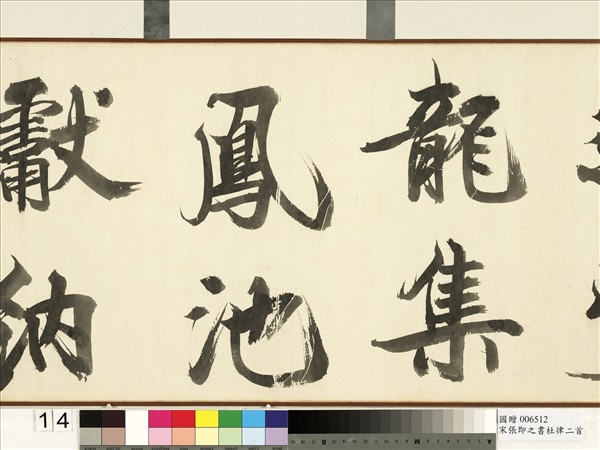 龍集
鳳池
獻納
14
國贈 006512
宋張即之書杜律二首